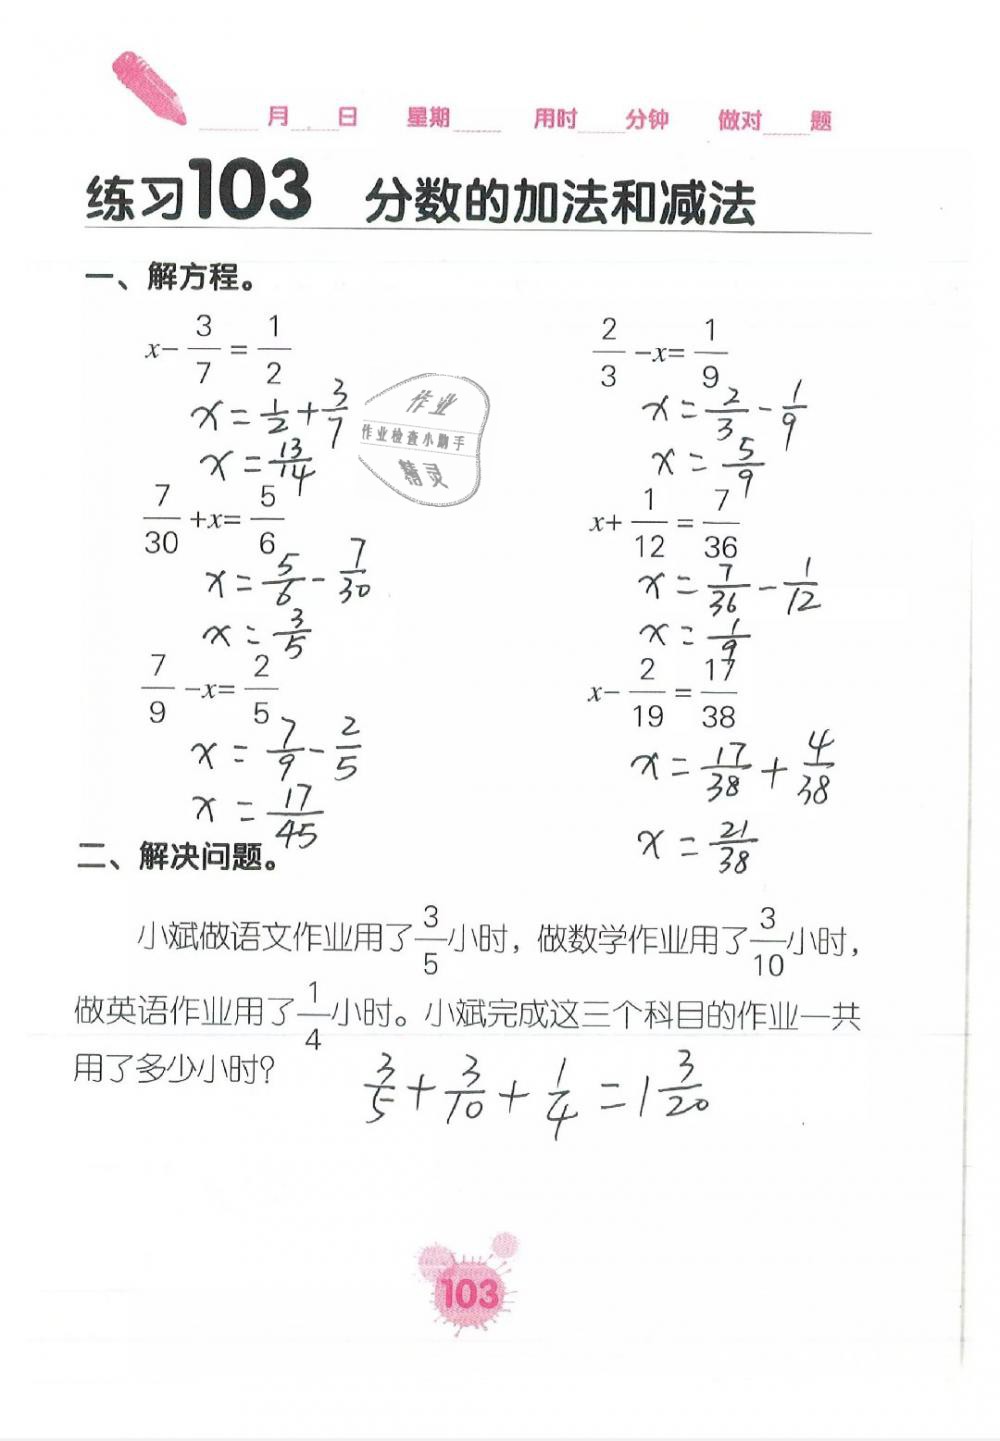 ____月____日 星期____ 用时____分钟 做对____题
练习103 分数的加法和减法
一、解方程。
x-3/7=1/2
x=1/2+3/7
x=13/14
2/3-x=1/9
x=2/3-1/9
x=5/9
作业
作业检查小助手
精灵
7/30+x=5/6
x=5/6-7/30
x=3/5
x+1/12=7/36
x=7/36-1/12
x=1/9
7/9-x=2/5
x=7/9-2/5
x=17/45
x-2/19=17/38
x=17/38+4/38
x=21/38
二、解决问题。
小斌做语文作业用了3/5小时，做数学作业用了3/10小时，
做英语作业用了1/4小时。小斌完成这三个科目的作业一共
用了多少小时?
3/5+3/10+1/4=1 3/20
103